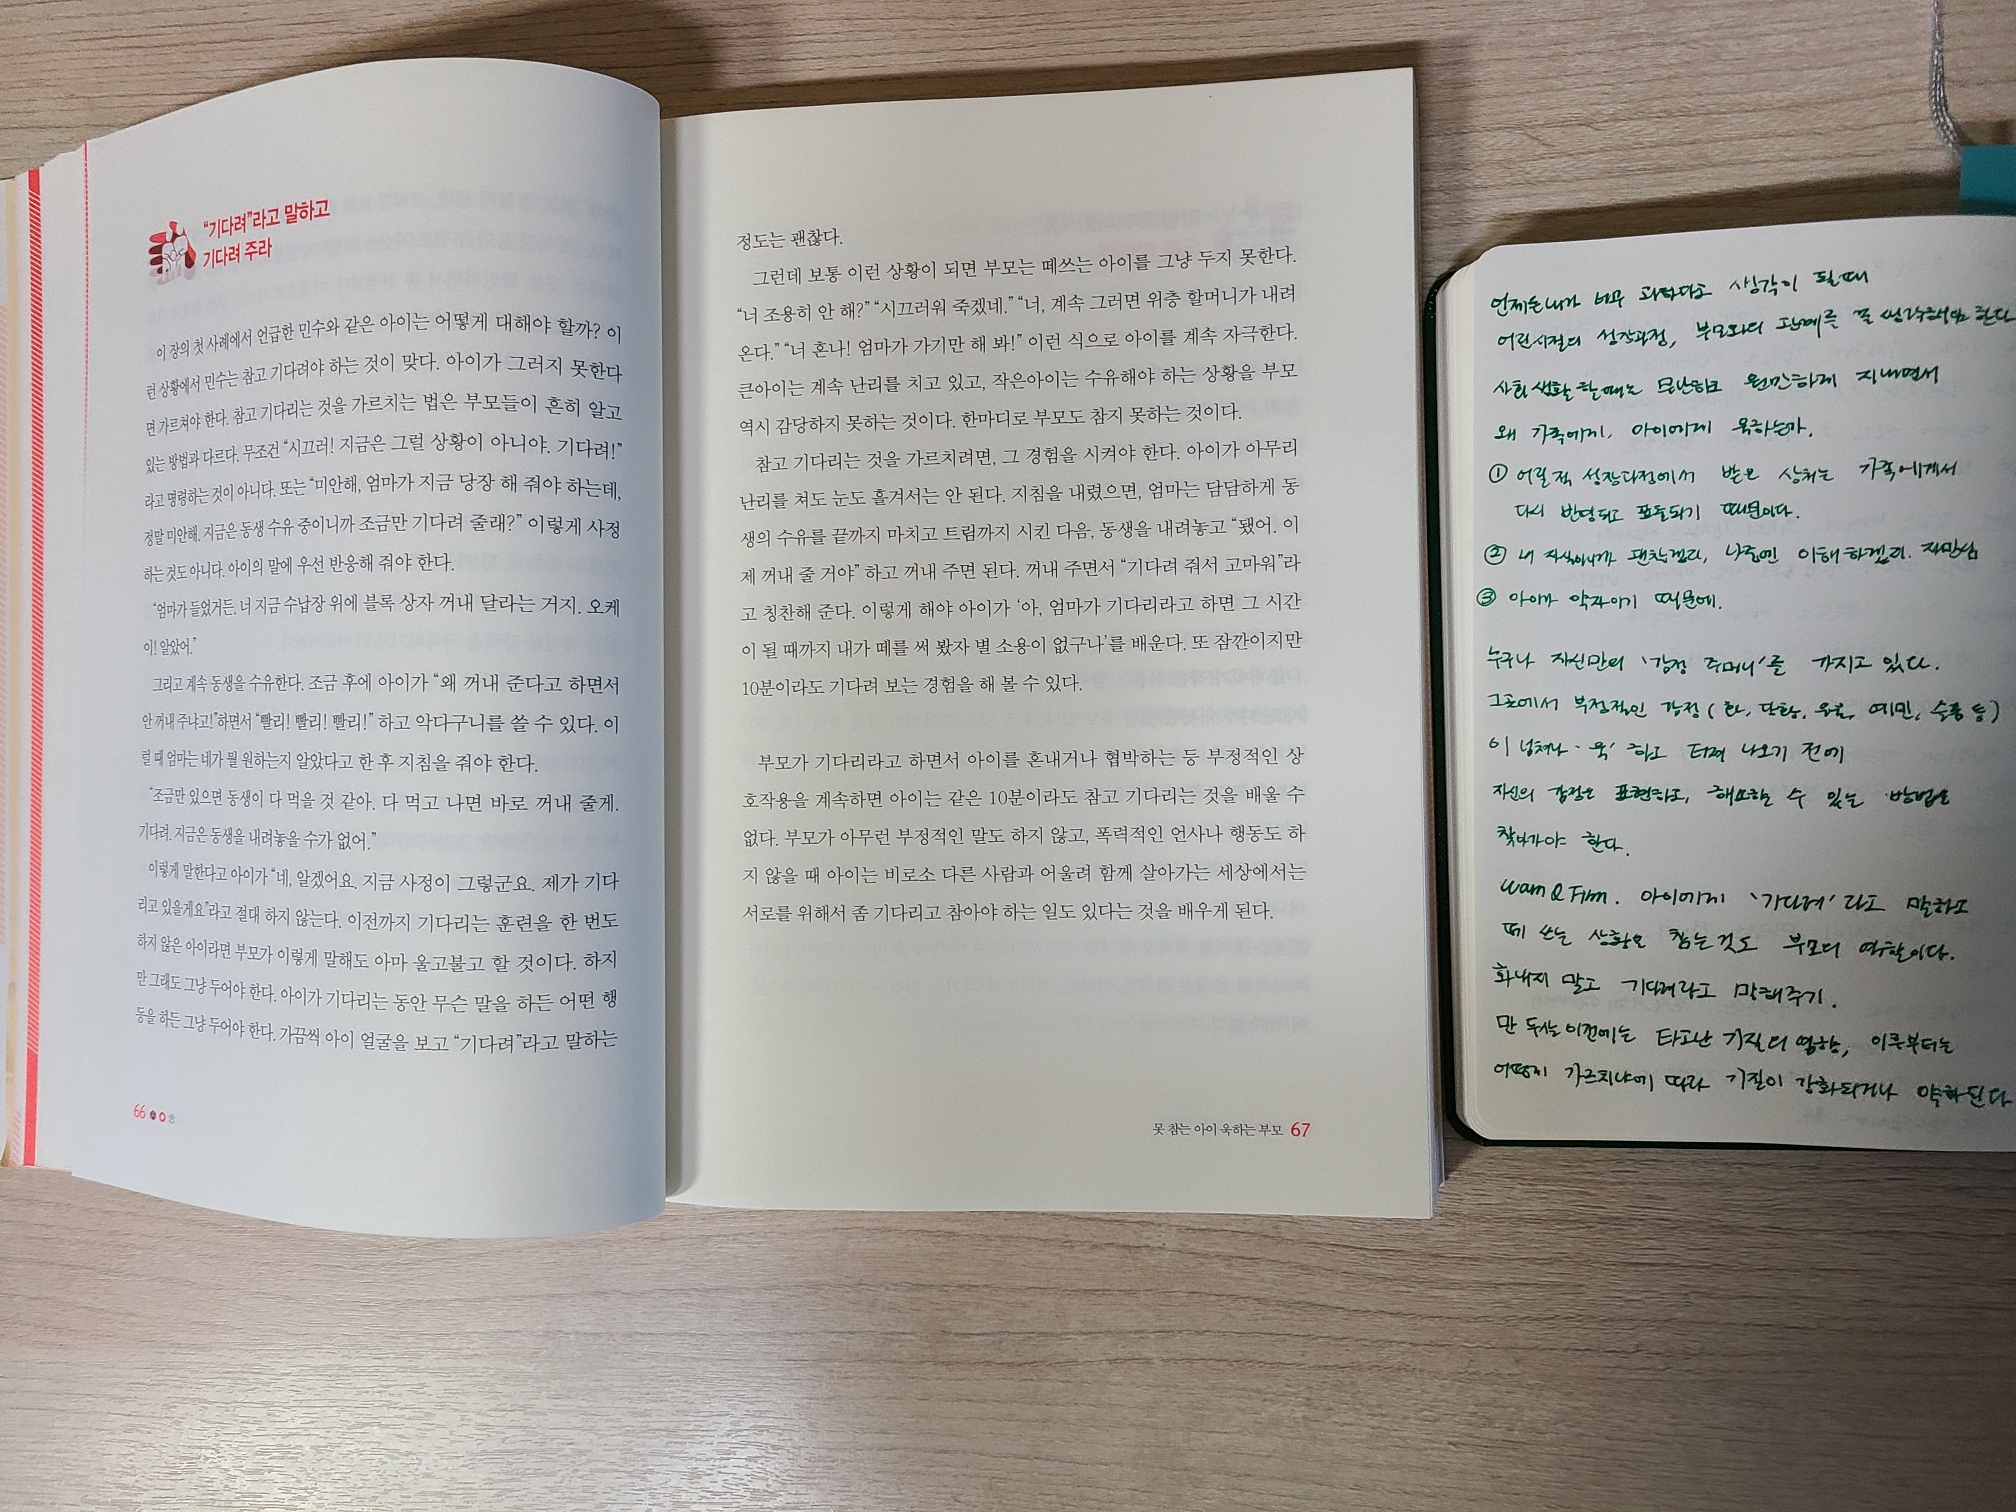 “기다려”라고 말하고
기다려 주라
이 장의 첫 사례에서 언급한 민수와 같은 아이는 어떻게 대해야 할까? 이
런 상황에서 민수는 참고 기다려야 하는 것이 맞다. 아이가 그러지 못한다
면 가르쳐야 한다. 참고 기다리는 것을 가르치는 법은 부모들이 흔히 알고
있는 방법과 다르다. 무조건 “시끄러! 지금은 그럴 상황이 아니야. 기다려!”
라고 명령하는 것이 아니다. 또는 “미안해, 엄마가 지금 당장 해 줘야 하는데,
정말 미안해. 지금은 동생 수유 중이니까 조금만 기다려 줄래?” 이렇게 사정
하는 것도 아니다. 아이의 말에 우선 반응해 줘야 한다.
“엄마가 들었거든. 너 지금 수납장 위에 블록 상자 꺼내 달라는 거지. 오케
이! 알았어.”
그리고 계속 동생을 수유한다. 조금 후에 아이가 “왜 꺼내 준다고 하면서
안 꺼내 주냐고!”하면서 “빨리! 빨리! 빨리!” 하고 악다구니를 쓸 수 있다. 이
럴 때 엄마는 네가 뭘 원하는지 알았다고 한 후 지침을 줘야 한다.
“조금만 있으면 동생이 다 먹을 것 같아. 다 먹고 나면 바로 꺼내 줄게.
기다려. 지금은 동생을 내려놓을 수가 없어.”
이렇게 말한다고 아이가 “네, 알겠어요. 지금 사정이 그렇군요. 제가 기다
리고 있을게요”라고 절대 하지 않는다. 이전까지 기다리는 훈련을 한 번도
하지 않은 아이라면 부모가 이렇게 말해도 아마 울고불고 할 것이다. 하지
만 그래도 그냥 두어야 한다. 아이가 기다리는 동안 무슨 말을 하든 어떤 행
동을 하든 그냥 두어야 한다. 가끔씩 아이 얼굴을 보고 “기다려”라고 말하는
66
정도는 괜찮다.
그런데 보통 이런 상황이 되면 부모는 떼쓰는 아이를 그냥 두지 못한다.
“너 조용히 안 해?” “시끄러워 죽겠네.” “너, 계속 그러면 위층 할머니가 내려
온다.” “너 혼나! 엄마가 가기만 해 봐!” 이런 식으로 아이를 계속 자극한다.
큰아이는 계속 난리를 치고 있고, 작은아이는 수유해야 하는 상황을 부모
역시 감당하지 못하는 것이다. 한마디로 부모도 참지 못하는 것이다.
참고 기다리는 것을 가르치려면, 그 경험을 시켜야 한다. 아이가 아무리
난리를 쳐도 눈도 흘겨서는 안 된다. 지침을 내렸으면, 엄마는 담담하게 동
생의 수유를 끝까지 마치고 트림까지 시킨 다음, 동생을 내려놓고 “됐어. 이
제 꺼내 줄 거야” 하고 꺼내 주면 된다. 꺼내 주면서 “기다려 줘서 고마워”라
고 칭찬해 준다. 이렇게 해야 아이가 ‘아, 엄마가 기다리라고 하면 그 시간
이 될 때까지 내가 떼를 써 봤자 별 소용이 없구나’를 배운다. 또 잠깐이지만
10분이라도 기다려 보는 경험을 해 볼 수 있다.
부모가 기다리라고 하면서 아이를 혼내거나 협박하는 등 부정적인 상
호작용을 계속하면 아이는 같은 10분이라도 참고 기다리는 것을 배울 수
없다. 부모가 아무런 부정적인 말도 하지 않고, 폭력적인 언사나 행동도 하
지 않을 때 아이는 비로소 다른 사람과 어울려 함께 살아가는 세상에서는
서로를 위해서 좀 기다리고 참아야 하는 일도 있다는 것을 배우게 된다.
못 참는 아이 욱하는 부모 67
언제든 내가 너무 과하다고 생각이 될 때
어린시절의 성장과정, 부모와의 관계를 꼭 생각해봐야 한다
사회생활 할 때는 무난하고 원만하게 지내면서
왜 가족에게, 아이에게 욱하는가.
① 어릴적 성장과정에서 받은 상처는 가족에게서
다시 반영되고 표출되기 때문이다.
② 내 자식이니까 괜찮겠지, 나중엔 이해하겠지. 자만심
③ 아이가 약자이기 때문에.
누구나 자신만의 '감정 주머니'를 가지고 있다.
그곳에서 부정적인 감정 (화, 당황, 우울, 예민, 슬픔 등)
이 넘쳐나 '욱' 하고 터져 나오기 전에
자신의 감정을 표현하고, 해소하는 수 있는 방법을
찾아가야 한다.
warm & firm. 아이에게 '기다려' 라고 말하고
떼 쓰는 상황을 참는것도 부모의 역할이다.
화내지 말고 기다려라고 말해주기.
만 두살 이전에는 타고난 기질의 영향, 이후부터는
어떻게 가르치냐에 따라 기질이 강화되거나 약화된다